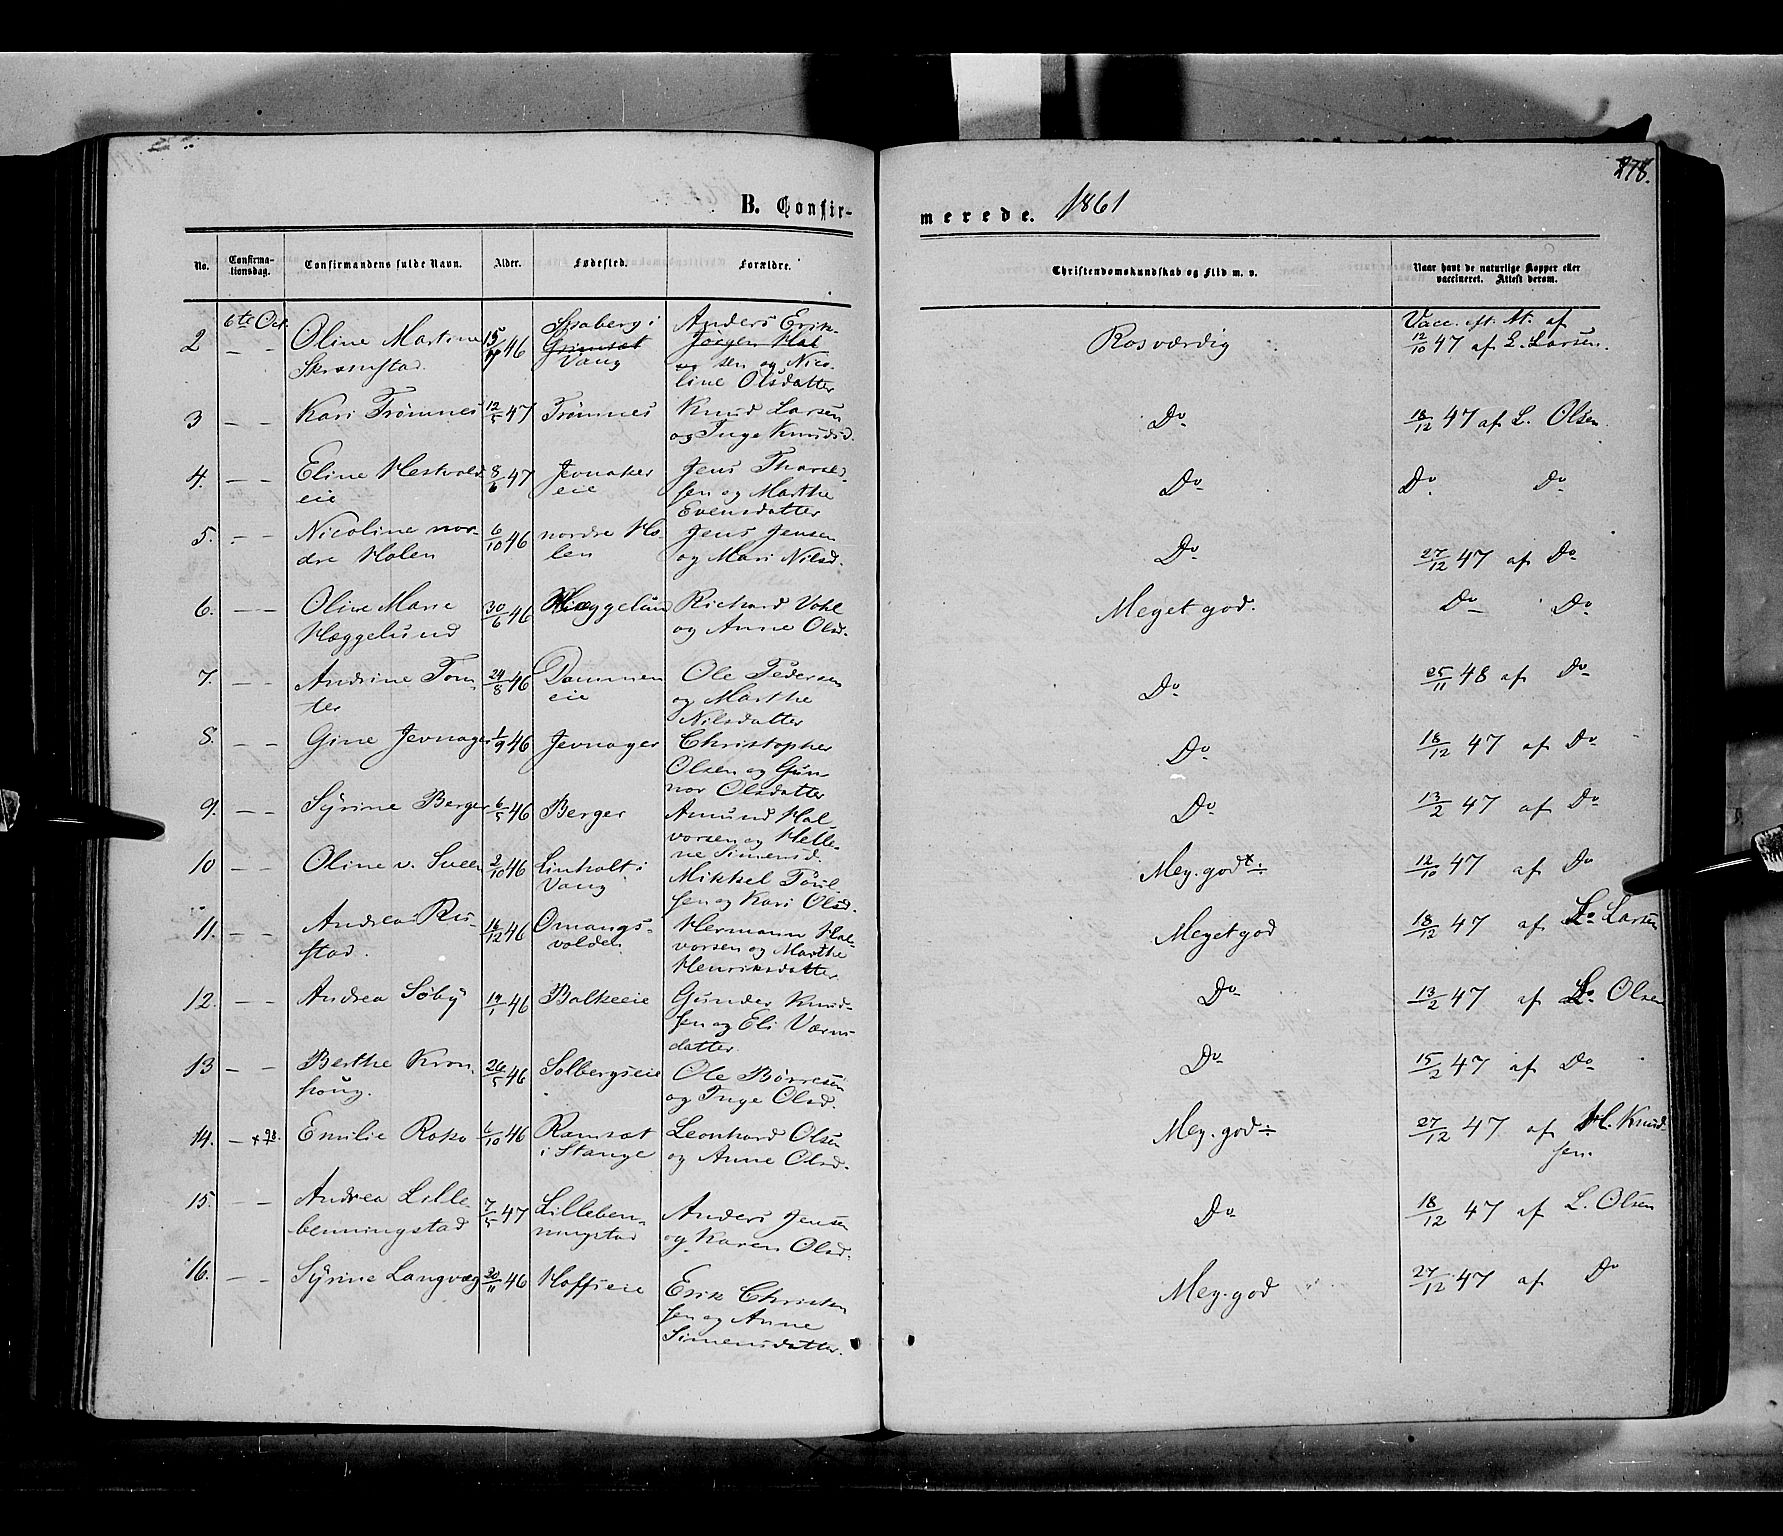 278.
B. Confirmerede. 1861
No. Confirmationsdag. Confirmandens fulde Navn. Alder. Fødested. Forældre. Christendomskundskab og Flid m. v. Naar havt de naturlige Kopper eller vaccineret. Attest derom.
2 6te Oct. — — Oline Martine 46 i Vang Anders Erik-
sen og Nico-
line Olsdatter Rosværdig Vacc. eft. At. af
12/10 47 af L. Larsen.
3 — — Kari Trømnes 12/5 47 Trømnes Knud Larsen
og Inge Knudsd. Do 18/12 47 af L. Olsen
4. — — Eline Hestvold-
eie 8/6 47 Jevnaker
eie Jens
sen og Marthe
Evensdatter Do Do Do
5. — — Nicoline nor-
dre Holen 6/10 46 nordre Ho
len Jens Jensen
og Mari Nilsd. Do 27/12 47 af Do
6. — — Oline Marie
Hæggelund 30/6 46 Hæggelund Richard Vohl
og Anne Olsd. Meget god. Do Do
7. — — Andrine Tom-
ter 24/8 46 Dammen
eie Ole Pedersen
og Marthe
Nilsdatter Do 25/11 48 af Do
8. — — Gine Jevnager 1/9 46 Jevnager Christopher
Olsen og Gun
nor Olsdatter Do 18/12 47 af Do
9. — — Syrine Berger 6/5 46 Berger Amund Hal-
vorsen og Helle-
ne Simensd. Do 13/2 47 af Do
10 — — Oline v. Sveen 2/10 46 Linholt i
Vang Mikkel
sen og Kari Olsd. Meg. god 12/10 47 af Do
11. — — Andrea Ru-
stad. 46 Omangs-
volden Hermann Hal-
vorsen og Marthe
Henriksdatter Meget god 18/12 47 af L. Larsen
12. — — Andrea Søby 19/1 46 Balkeeie Gunder Knud-
sen og Eli
datter. Do 13/2 47 af L. Olsen
13 — — Berthe Kron
houg. 26/5 46 Solbergseie Ole Børresen
og Inge Olsd. Do 15/2 47 af Do
14. — Emilie Roko 6/10 46 Ramset
i Stange Leonhard Olsen
og Anne Olsd. Meg. god 27/12 47 af H. Knud-
sen.
15. — — Andrea Lille
benningstad 7/5 47 Lilleben-
ningstad Anders Jensen
og Karen Olsd. Do 18/12 47 af L. Olsen
16. — — Syrine Langvæg 20/11 46 Hoffseie Erik Christen
sen og Anne
Simensdatter. Meg. god 27/12 47 af Do